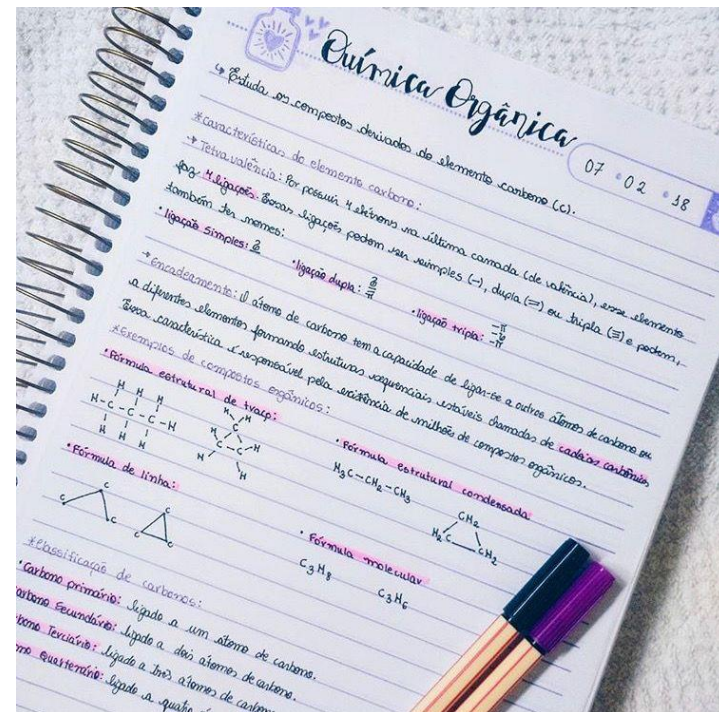 Química Orgânica
07 02 18
↳ Estuda os compostos derivados do elemento carbono (C).
*características do elemento carbono:
→ Tetravalência: Por possuir 4 elétrons na última camada (de valência), esse elemento
faz 4 ligações. Essas ligações podem ser simples (-), dupla (=) ou tripla (≡) e podem,
também ter nomes:
• ligação simples: • ligação dupla: • ligação tripla:
→ encadeamento: O átomo de carbono tem a capacidade de ligar-se a outros átomos de carbono ou
a diferentes elementos formando estruturas sequenciais estáveis chamadas de cadeias carbônicas.
Essa característica é responsável pela existência de milhões de compostos orgânicos.
*exemplos de compostos orgânicos:
• Fórmula estrutural de traço: • Fórmula estrutural condensada
H H H
H-C-C-C-H
H H H
H H
C
H C C H
H H
H₃C-CH₂-CH₃
CH₂
H₂C CH₂
• Fórmula de linha: • Fórmula molecular
C C C
C C C
C₃H₈ C₃H₆
*classificação de carbonos:
• Carbono primário: ligado a um átomo de carbono.
arbono secundário: ligado a dois átomos de carbono.
bono Terciário: ligado a três átomos de carbono
no Quaternário: ligado a quatro